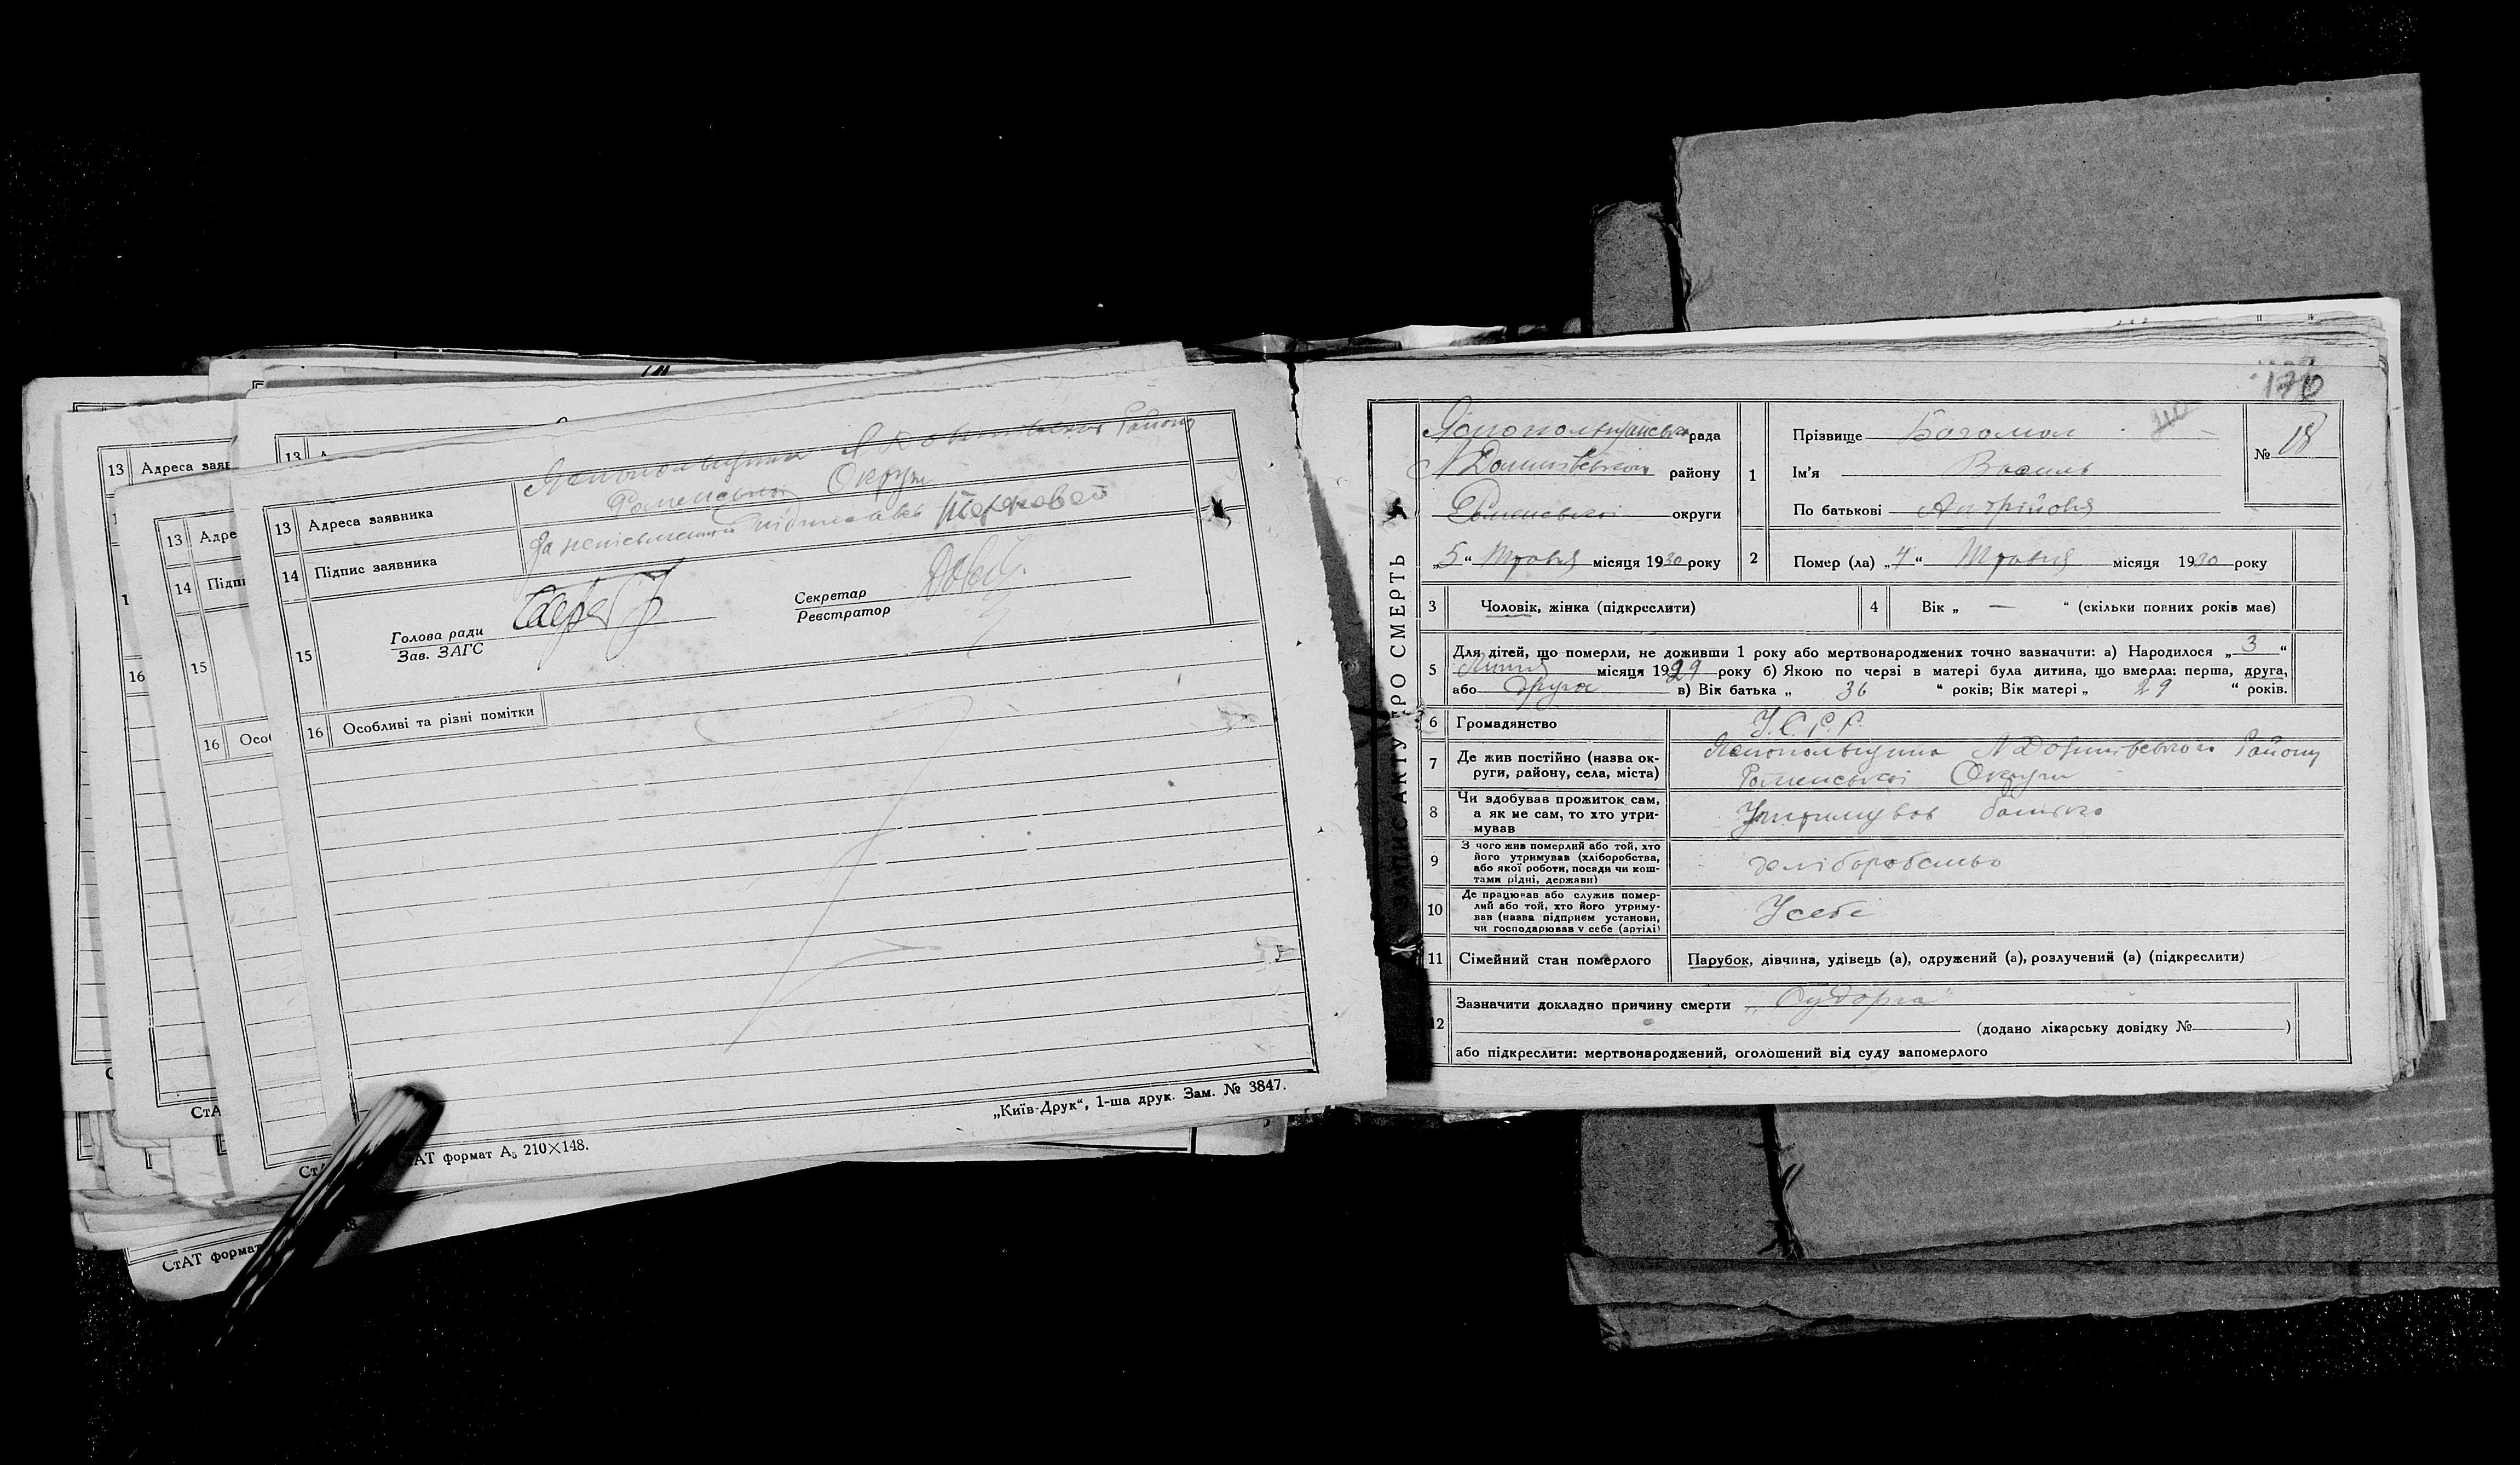 13 Адреса заяв
13
13 Адре
14 Підпи
15
16 Особ
16
13 Адреса заявника Району
Роменської Округи
14 Підпис заявника За неписьменного підписавсь
15 Голова ради
Зав. ЗАГС
Секретар
Реєстратор
16 Особливі та різні помітки
„Київ-Друк“, 1-ша друк. Зам. № 3847.
АТ формат А₅ 210×148.
СтАТ формат
170
ПРО СМЕРТЬ
рада
району
Роменської округи
„5“ Травня місяця 1930 року
1 Прізвище Богомол
Ім'я Василь
По батькові Андрійовя
№ 18
2 Помер (ла) „4“ Травня місяця 1930 року
3 Чоловік, жінка (підкреслити)
4 Вік „ — “ (скільки повних років має)
5 Для дітей, що померли, не доживши 1 року або мертвонароджених точно зазначити: а) Народилося „3“
Липня місяця 1929 року б) Якою по черзі в матері була дитина, що вмерла: перша, друга,
або друга в) Вік батька „ 36 “ років; Вік матері „ 29 “ років.
6 Громадянство У.С.Р.Р.
7 Де жив постійно (назва ок-
руги, району, села, міста)
Району
Роменської Округи
8 Чи здобував прожиток сам,
а як не сам, то хто утри-
мував
Утримував батько
9 З чого жив померлий або той, хто
його утримував (хліборобства,
або якої роботи, посади чи кош-
тами рідні, держави)
хліборобство
10 Де працював або служив помер-
лий або той, хто його утриму-
вав (назва підприєм установи,
чи господарював у себе (артілі)
У себе
11 Сімейний стан померлого Парубок, дівчина, удівець (а), одружений (а), розлучений (а) (підкреслити)
12 Зазначити докладно причину смерти „Судорга“
(додано лікарську довідку № )
або підкреслити: мертвонароджений, оголошений від суду запомерлого